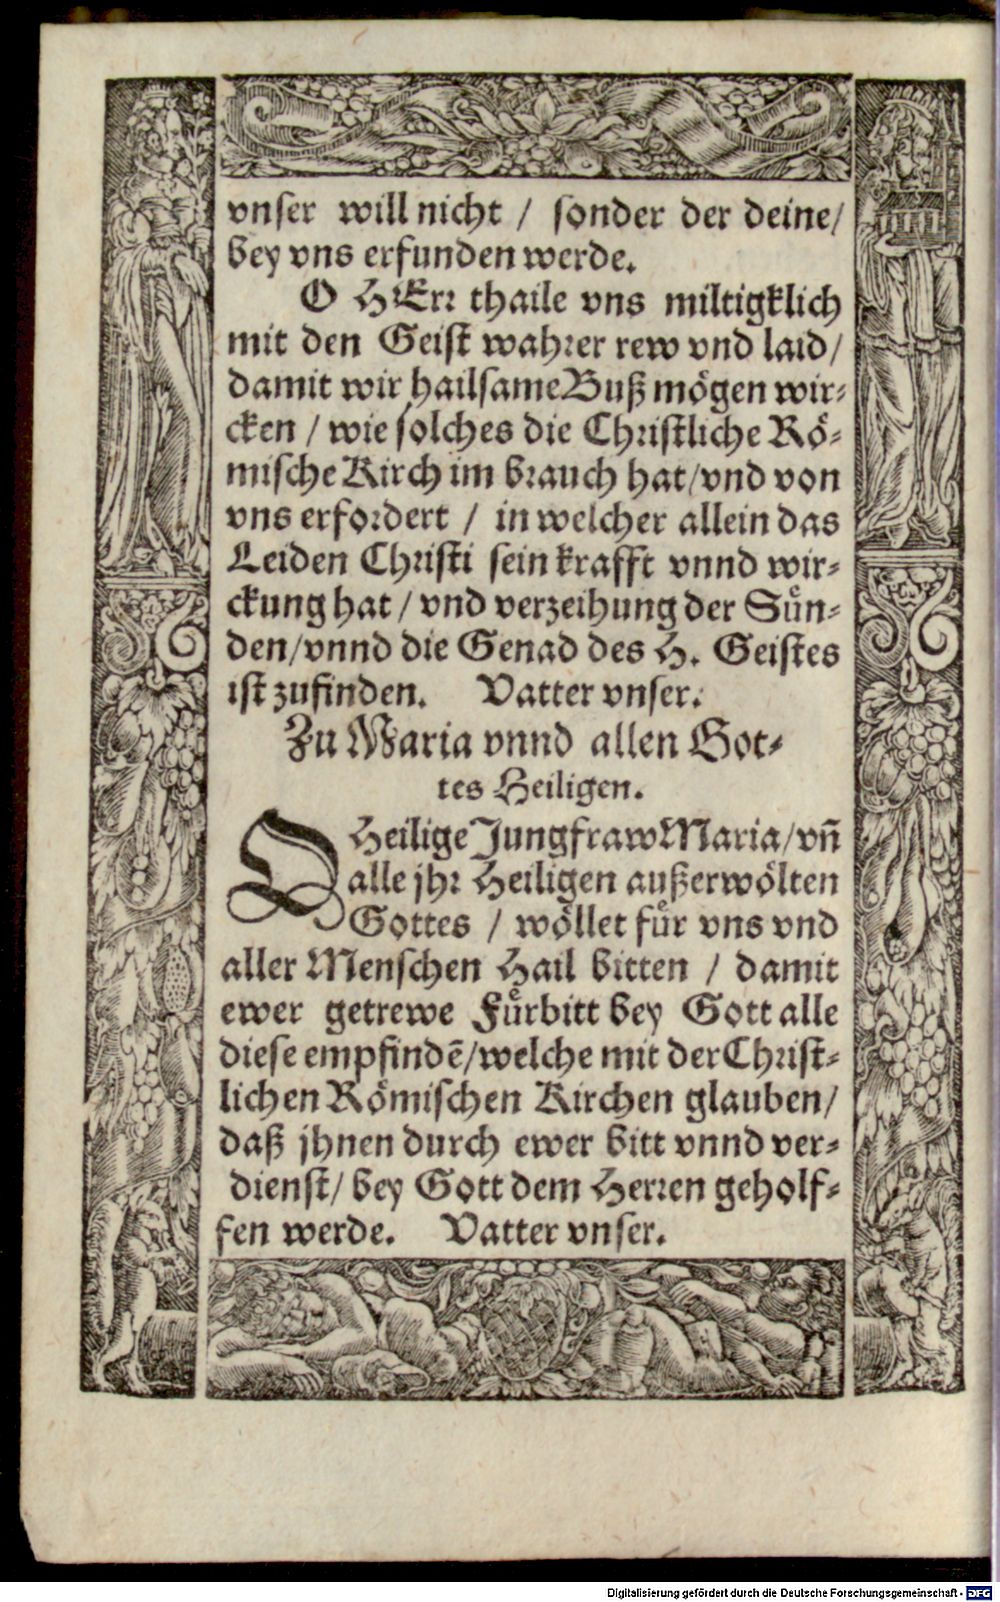 vnser will nicht / sonder der deine/
bey vns erfunden werde.
O HErr thaile vns miltigklich
mit den Geist wahrer rew vnd laid/
damit wir hailsame Buß mögen wir-
cken / wie solches die Christliche Rö-
mische Kirch im brauch hat/vnd von
vns erfordert / in welcher allein das
Leiden Christi sein krafft vnnd wir-
ckung hat / vnd verzeihung der Sün-
den/vnnd die Genad des H. Geistes
ist zufinden. Vatter vnser.
Zu Maria vnnd allen Got-
tes Heiligen.
O Heilige Jungfraw Maria/vn̄
alle jhr Heiligen außerwölten
Gottes / wöllet für vns vnd
aller Menschen Hail bitten / damit
ewer getrewe Fürbitt bey Gott alle
diese empfindē/welche mit der Christ-
lichen Römischen Kirchen glauben/
daß jhnen durch ewer bitt vnnd ver-
dienst/ bey Gott dem Herren geholf-
fen werde. Vatter vnser.
Digitalisierung gefördert durch die Deutsche Forschungsgemeinschaft - DFG